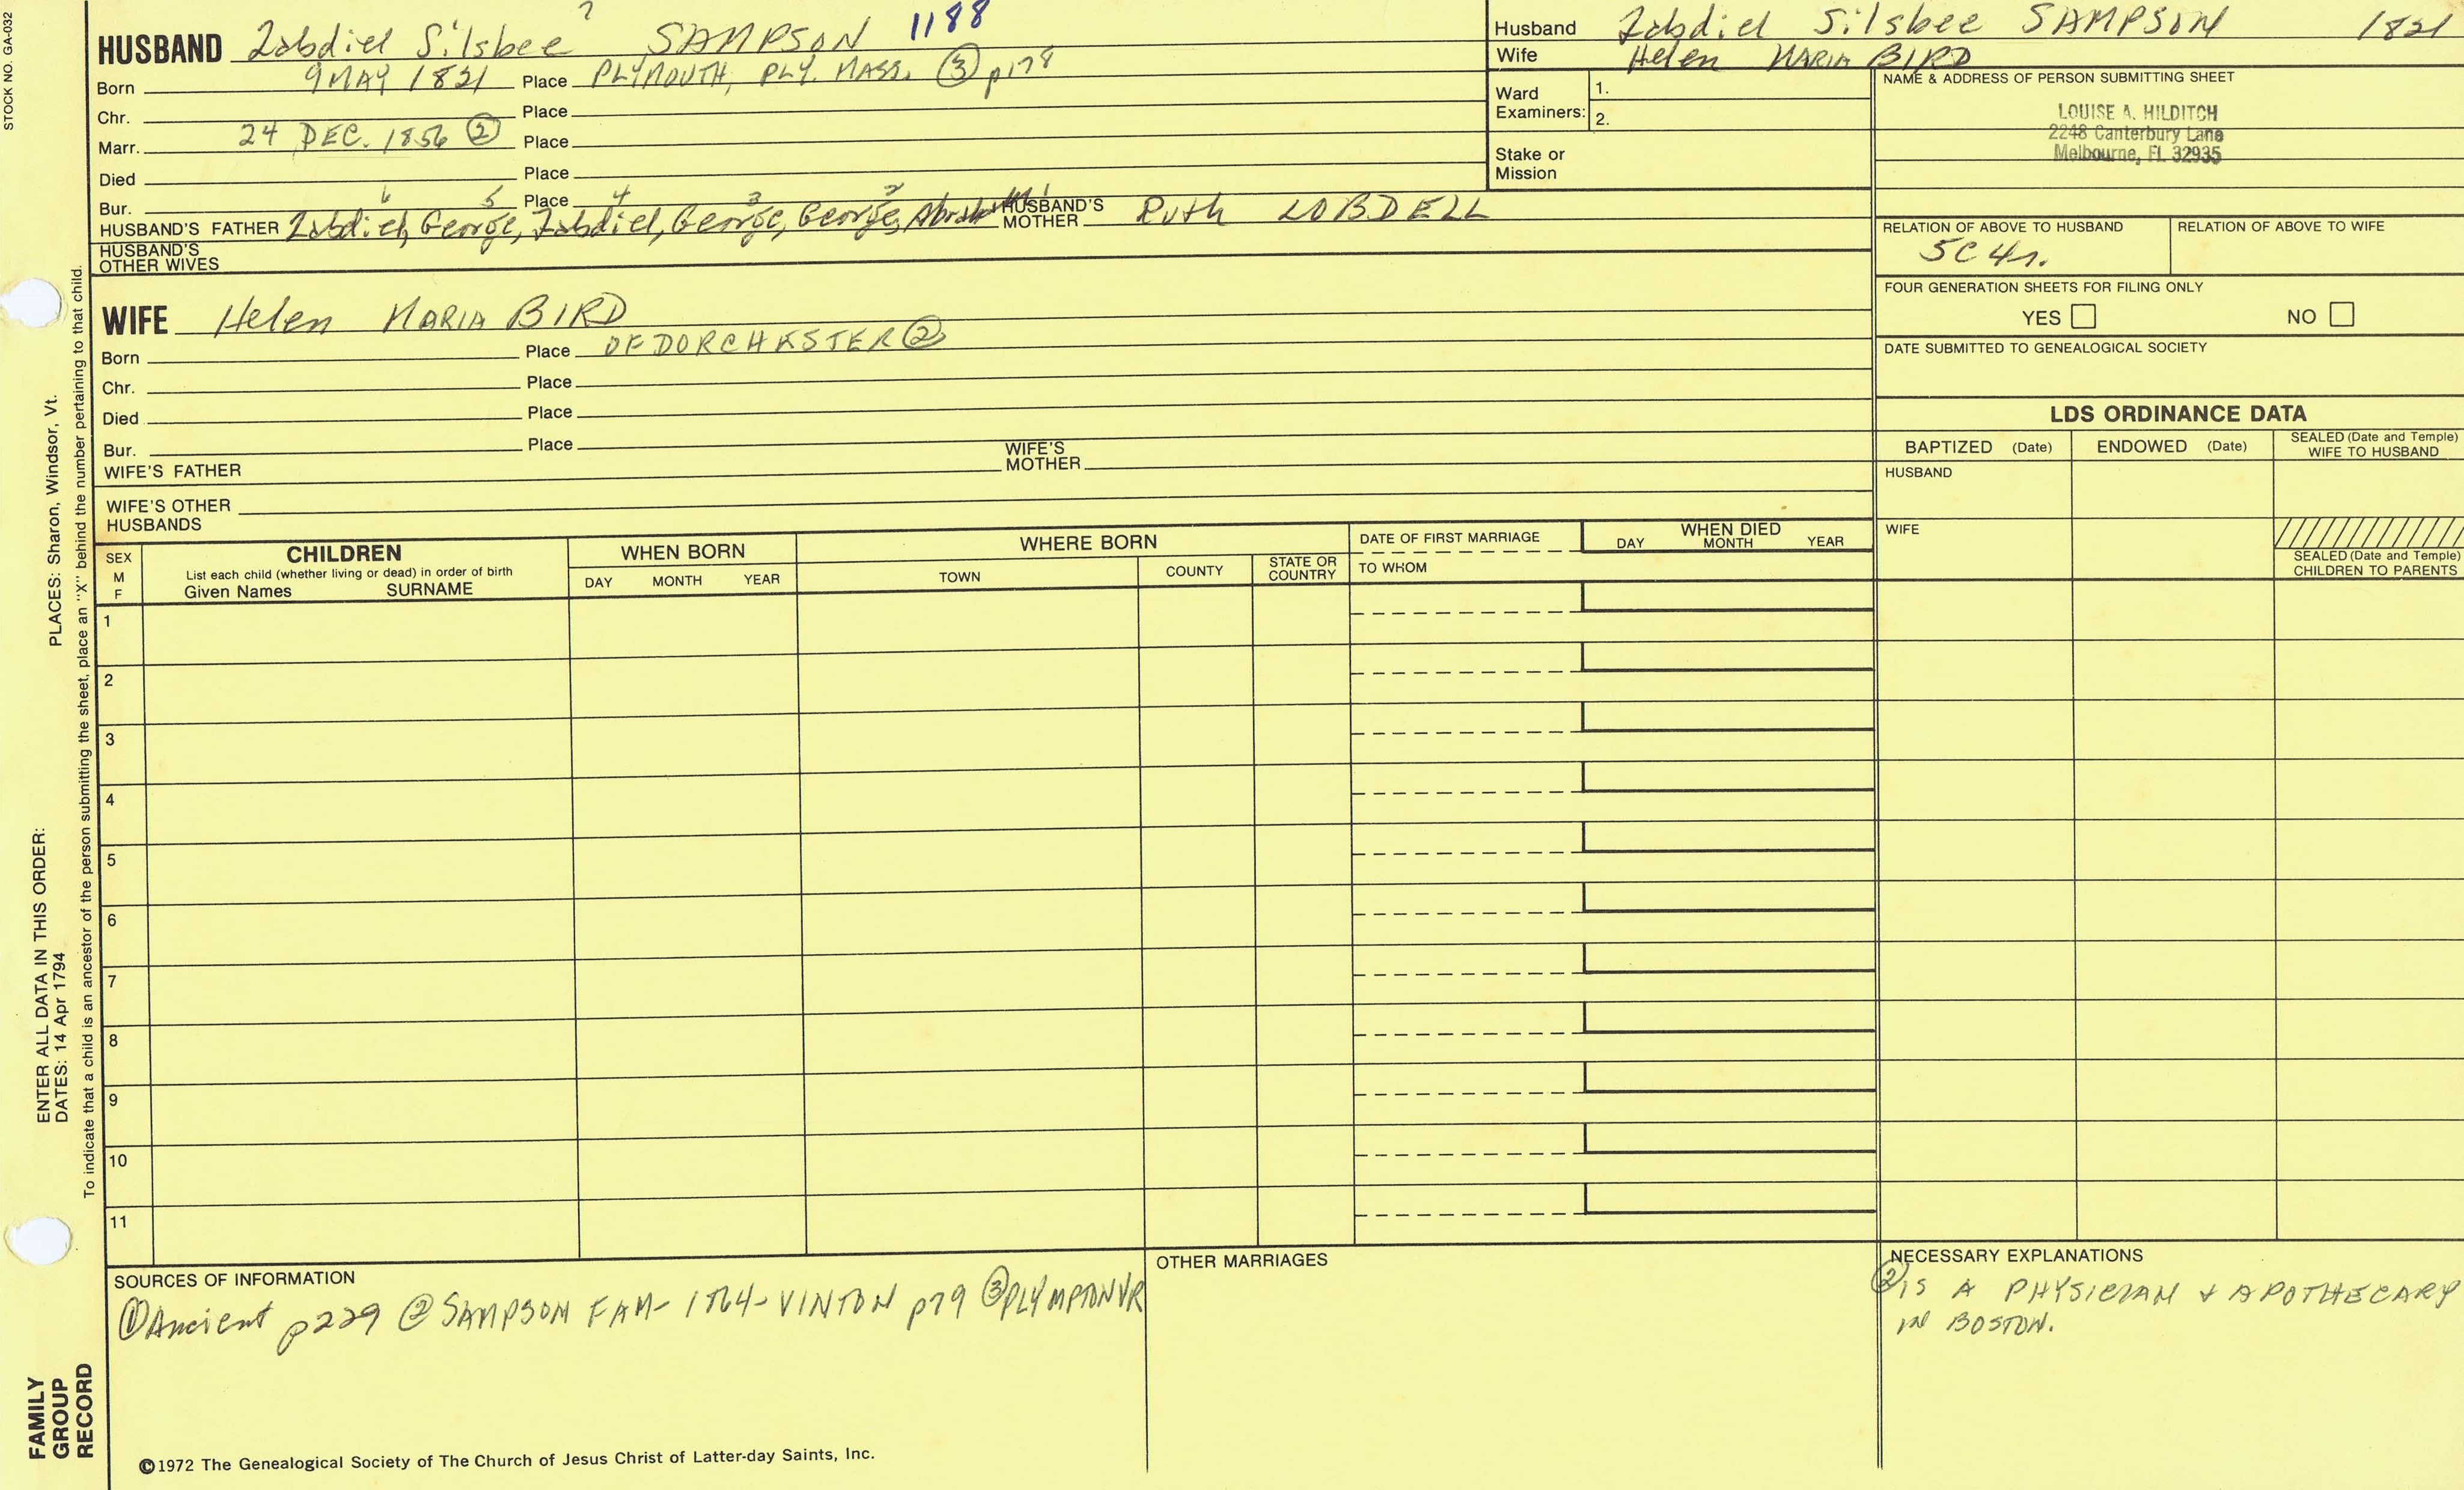 STOCK NO. GA-032
HUSBAND Zabdiel Silsbee ? SAMPSON 1188
Born 9 MAY 1821 Place PLYMOUTH, PLY. MASS. ③ p178
Chr. Place
Marr. 24 DEC. 1856 ② Place
Died Place
Bur. Place
6 5 4 3 2 1
HUSBAND'S FATHER Zabdiel, George, Zabdiel, George, George, HUSBAND'S MOTHER Ruth LOBDELL
HUSBAND'S OTHER WIVES
Husband Zabdiel Silsbee SAMPSON 1821
Wife Helen MARIA BIRD
Ward Examiners: 1.
2.
Stake or Mission
NAME & ADDRESS OF PERSON SUBMITTING SHEET
LOUISE A. HILDITCH
2248 Canterbury Lane
Melbourne, Fl. 32935
RELATION OF ABOVE TO HUSBAND RELATION OF ABOVE TO WIFE
5C 4r.
FOUR GENERATION SHEETS FOR FILING ONLY
YES NO
DATE SUBMITTED TO GENEALOGICAL SOCIETY
WIFE Helen MARIA BIRD
Born Place OF DORCHESTER ②
Chr. Place
Died Place
Bur. Place
WIFE'S FATHER WIFE'S MOTHER
WIFE'S OTHER HUSBANDS
LDS ORDINANCE DATA
BAPTIZED (Date) ENDOWED (Date) SEALED (Date and Temple) WIFE TO HUSBAND
HUSBAND
WIFE
SEALED (Date and Temple) CHILDREN TO PARENTS
SEX M F
CHILDREN
List each child (whether living or dead) in order of birth
Given Names SURNAME
WHEN BORN
DAY MONTH YEAR
WHERE BORN
TOWN COUNTY STATE OR COUNTRY
DATE OF FIRST MARRIAGE
TO WHOM
WHEN DIED
DAY MONTH YEAR
1
2
3
4
5
6
7
8
9
10
11
SOURCES OF INFORMATION
① Ancient p229 ② SAMPSON FAM- 1864- VINTON p79 ③ PLYMPTON VR
OTHER MARRIAGES
NECESSARY EXPLANATIONS
② IS A PHYSICIAN + APOTHECARY
IN BOSTON.
©1972 The Genealogical Society of The Church of Jesus Christ of Latter-day Saints, Inc.
FAMILY
GROUP
RECORD
ENTER ALL DATA IN THIS ORDER:
DATES: 14 Apr 1794 PLACES: Sharon, Windsor, Vt.
To indicate that a child is an ancestor of the person submitting the sheet, place an "X" behind the number pertaining to that child.